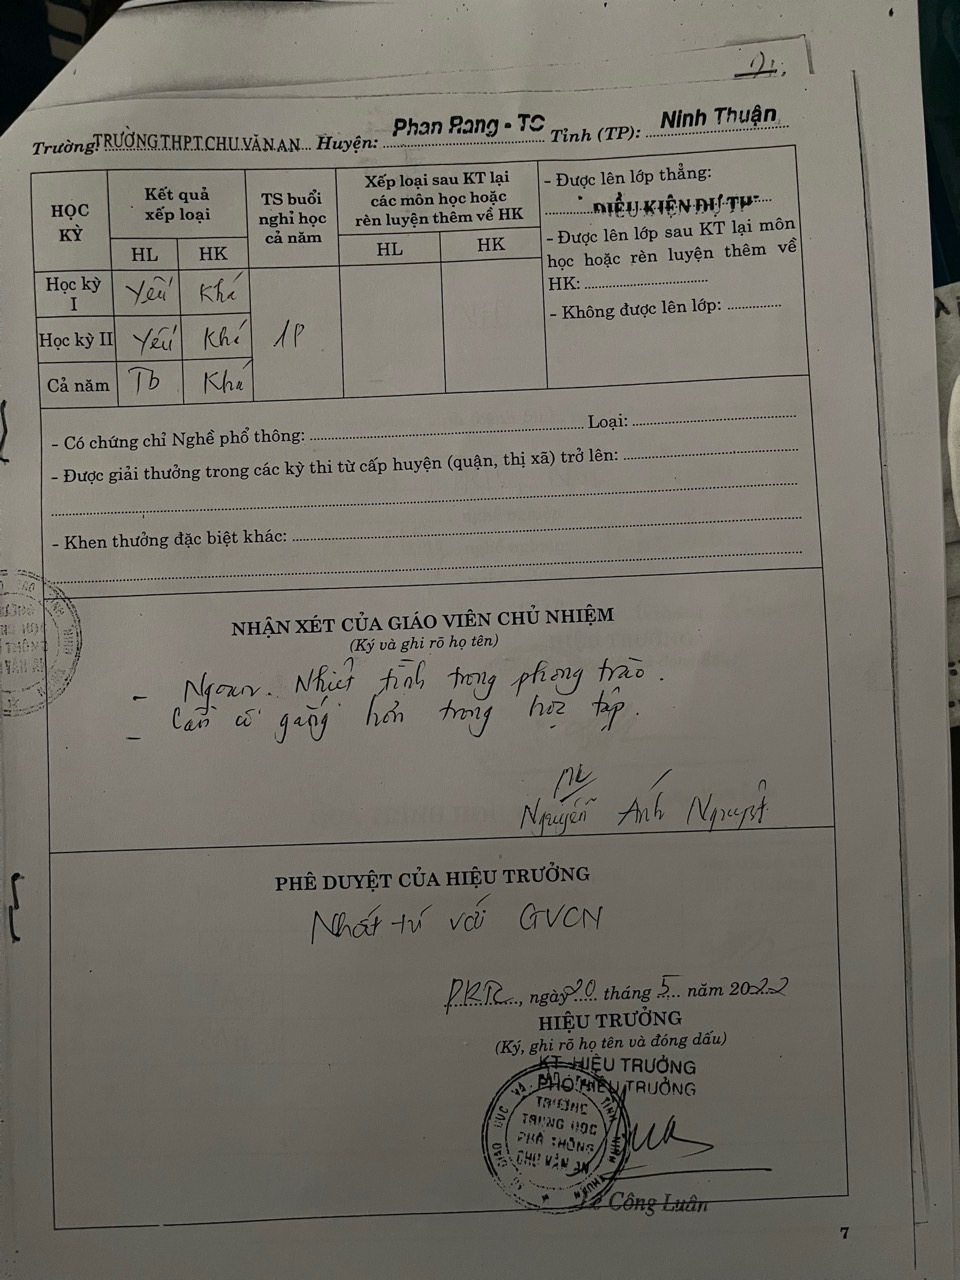 Trường: TRƯỜNG THPT CHU VĂN AN Huyện: Phan Rang - TC Tỉnh (TP): Ninh Thuận
HỌC KỲ
Kết quả xếp loại
HL HK
TS buổi nghỉ học cả năm
Xếp loại sau KT lại các môn học hoặc rèn luyện thêm về HK
HL HK
Học kỳ I Yếu Khá
Học kỳ II Yếu Khá 1P
Cả năm Tb Khá
- Được lên lớp thẳng:
ĐIỀU KIỆN DỰ TH
- Được lên lớp sau KT lại môn
học hoặc rèn luyện thêm về
HK:
- Không được lên lớp:
- Có chứng chỉ Nghề phổ thông: Loại:
- Được giải thưởng trong các kỳ thi từ cấp huyện (quận, thị xã) trở lên:
- Khen thưởng đặc biệt khác:
NHẬN XÉT CỦA GIÁO VIÊN CHỦ NHIỆM
(Ký và ghi rõ họ tên)
- Ngoan. Nhiệt tình trong phong trào.
- Cần cố gắng hơn trong học tập.
Nguyễn Ánh Nguyệt
PHÊ DUYỆT CỦA HIỆU TRƯỞNG
Nhất trí với GVCN
PRTC, ngày 20 tháng 5 năm 2022
HIỆU TRƯỞNG
(Ký, ghi rõ họ tên và đóng dấu)
KT HIỆU TRƯỞNG
PHÓ HIỆU TRƯỞNG
TRƯỜNG
TRUNG HỌC
PHỔ THÔNG
CHU VĂN AN
Lê Công Luân
7